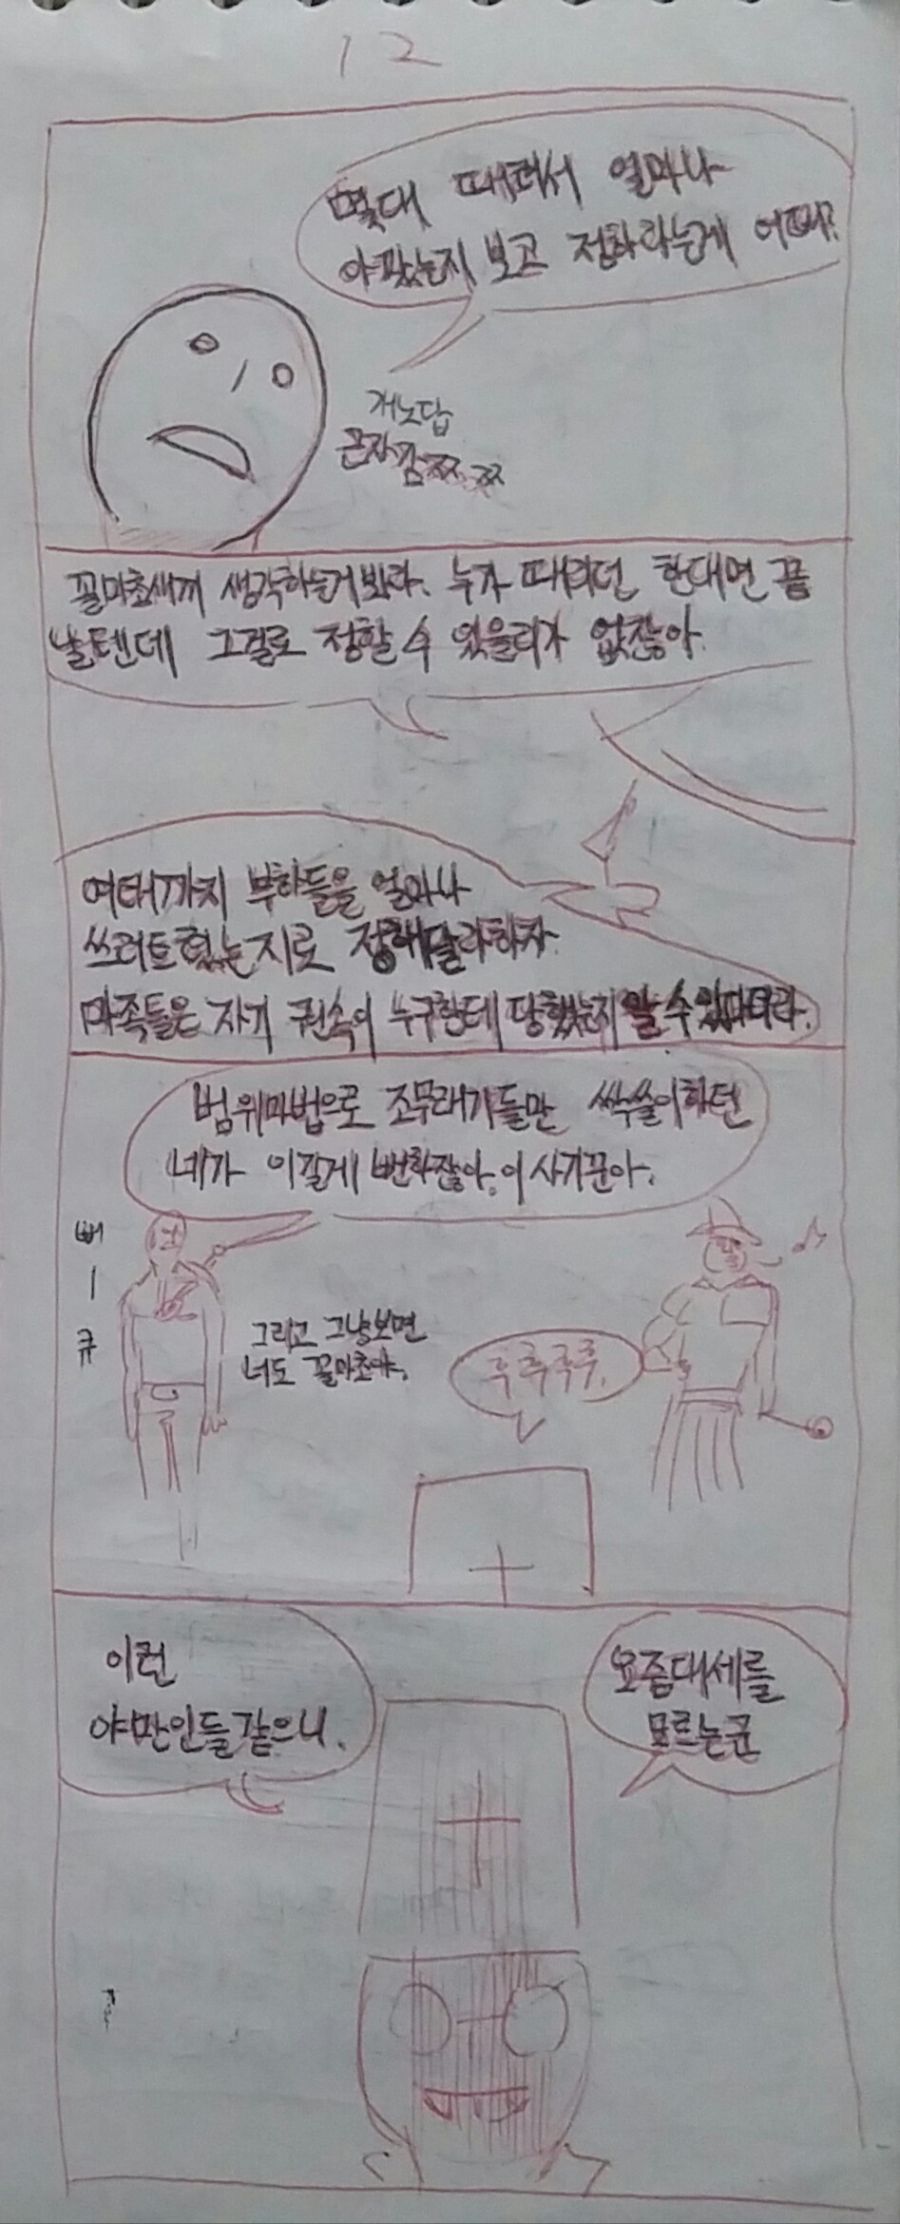 12
몇대 때려서 얼마나
아팠는지 보고 정하라는게 어때?
개노답
근자감 ㅉㅉ
꼴마초새끼 생각하는거 봐라. 누가 때리던 한대면 끝
날텐데 그걸로 정할 수 있을리가 없잖아.
여태까지 부하들을 얼마나
쓰러트렸는지로 정해달라하자.
마족들은 자기 권속이 누구한테 당했는지 알 수 있다더라.
범위마법으로 조무래기들만 싹쓸이하던
네가 이길게 뻔하잖아. 이 사기꾼아.
뻐
ㅣ
큐
그리고 그냥보면
너도 꼴마초야.
후후후후.
이런
야만인들같으니.
요즘대세를
모르는군